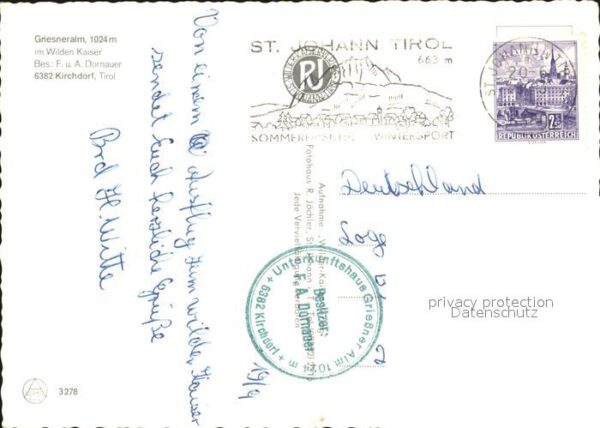 Griesneralm, 1024 m
im Wilden Kaiser
Bes.: F. u. A. Dornauer
6382 Kirchdorf, Tirol
ST. JOHANN TIROL
663 m
SOMMERFRISCHE WINTERSPORT
REPUBLIK ÖSTERREICH
Von einem Ausflug zum wilden Kaiser
sendet Euch herzliche Grüße
Brd H. Witte
19/9
Deutschland
Aufnahme:
Fotohaus R. Jöchler, St. Johann
Jede
Unterkunftshaus Grießner Alm 1024 m
+ 6382 Kirchdorf +
Besitzer:
F. A. Dornauer
privacy protection
Datenschutz
3278